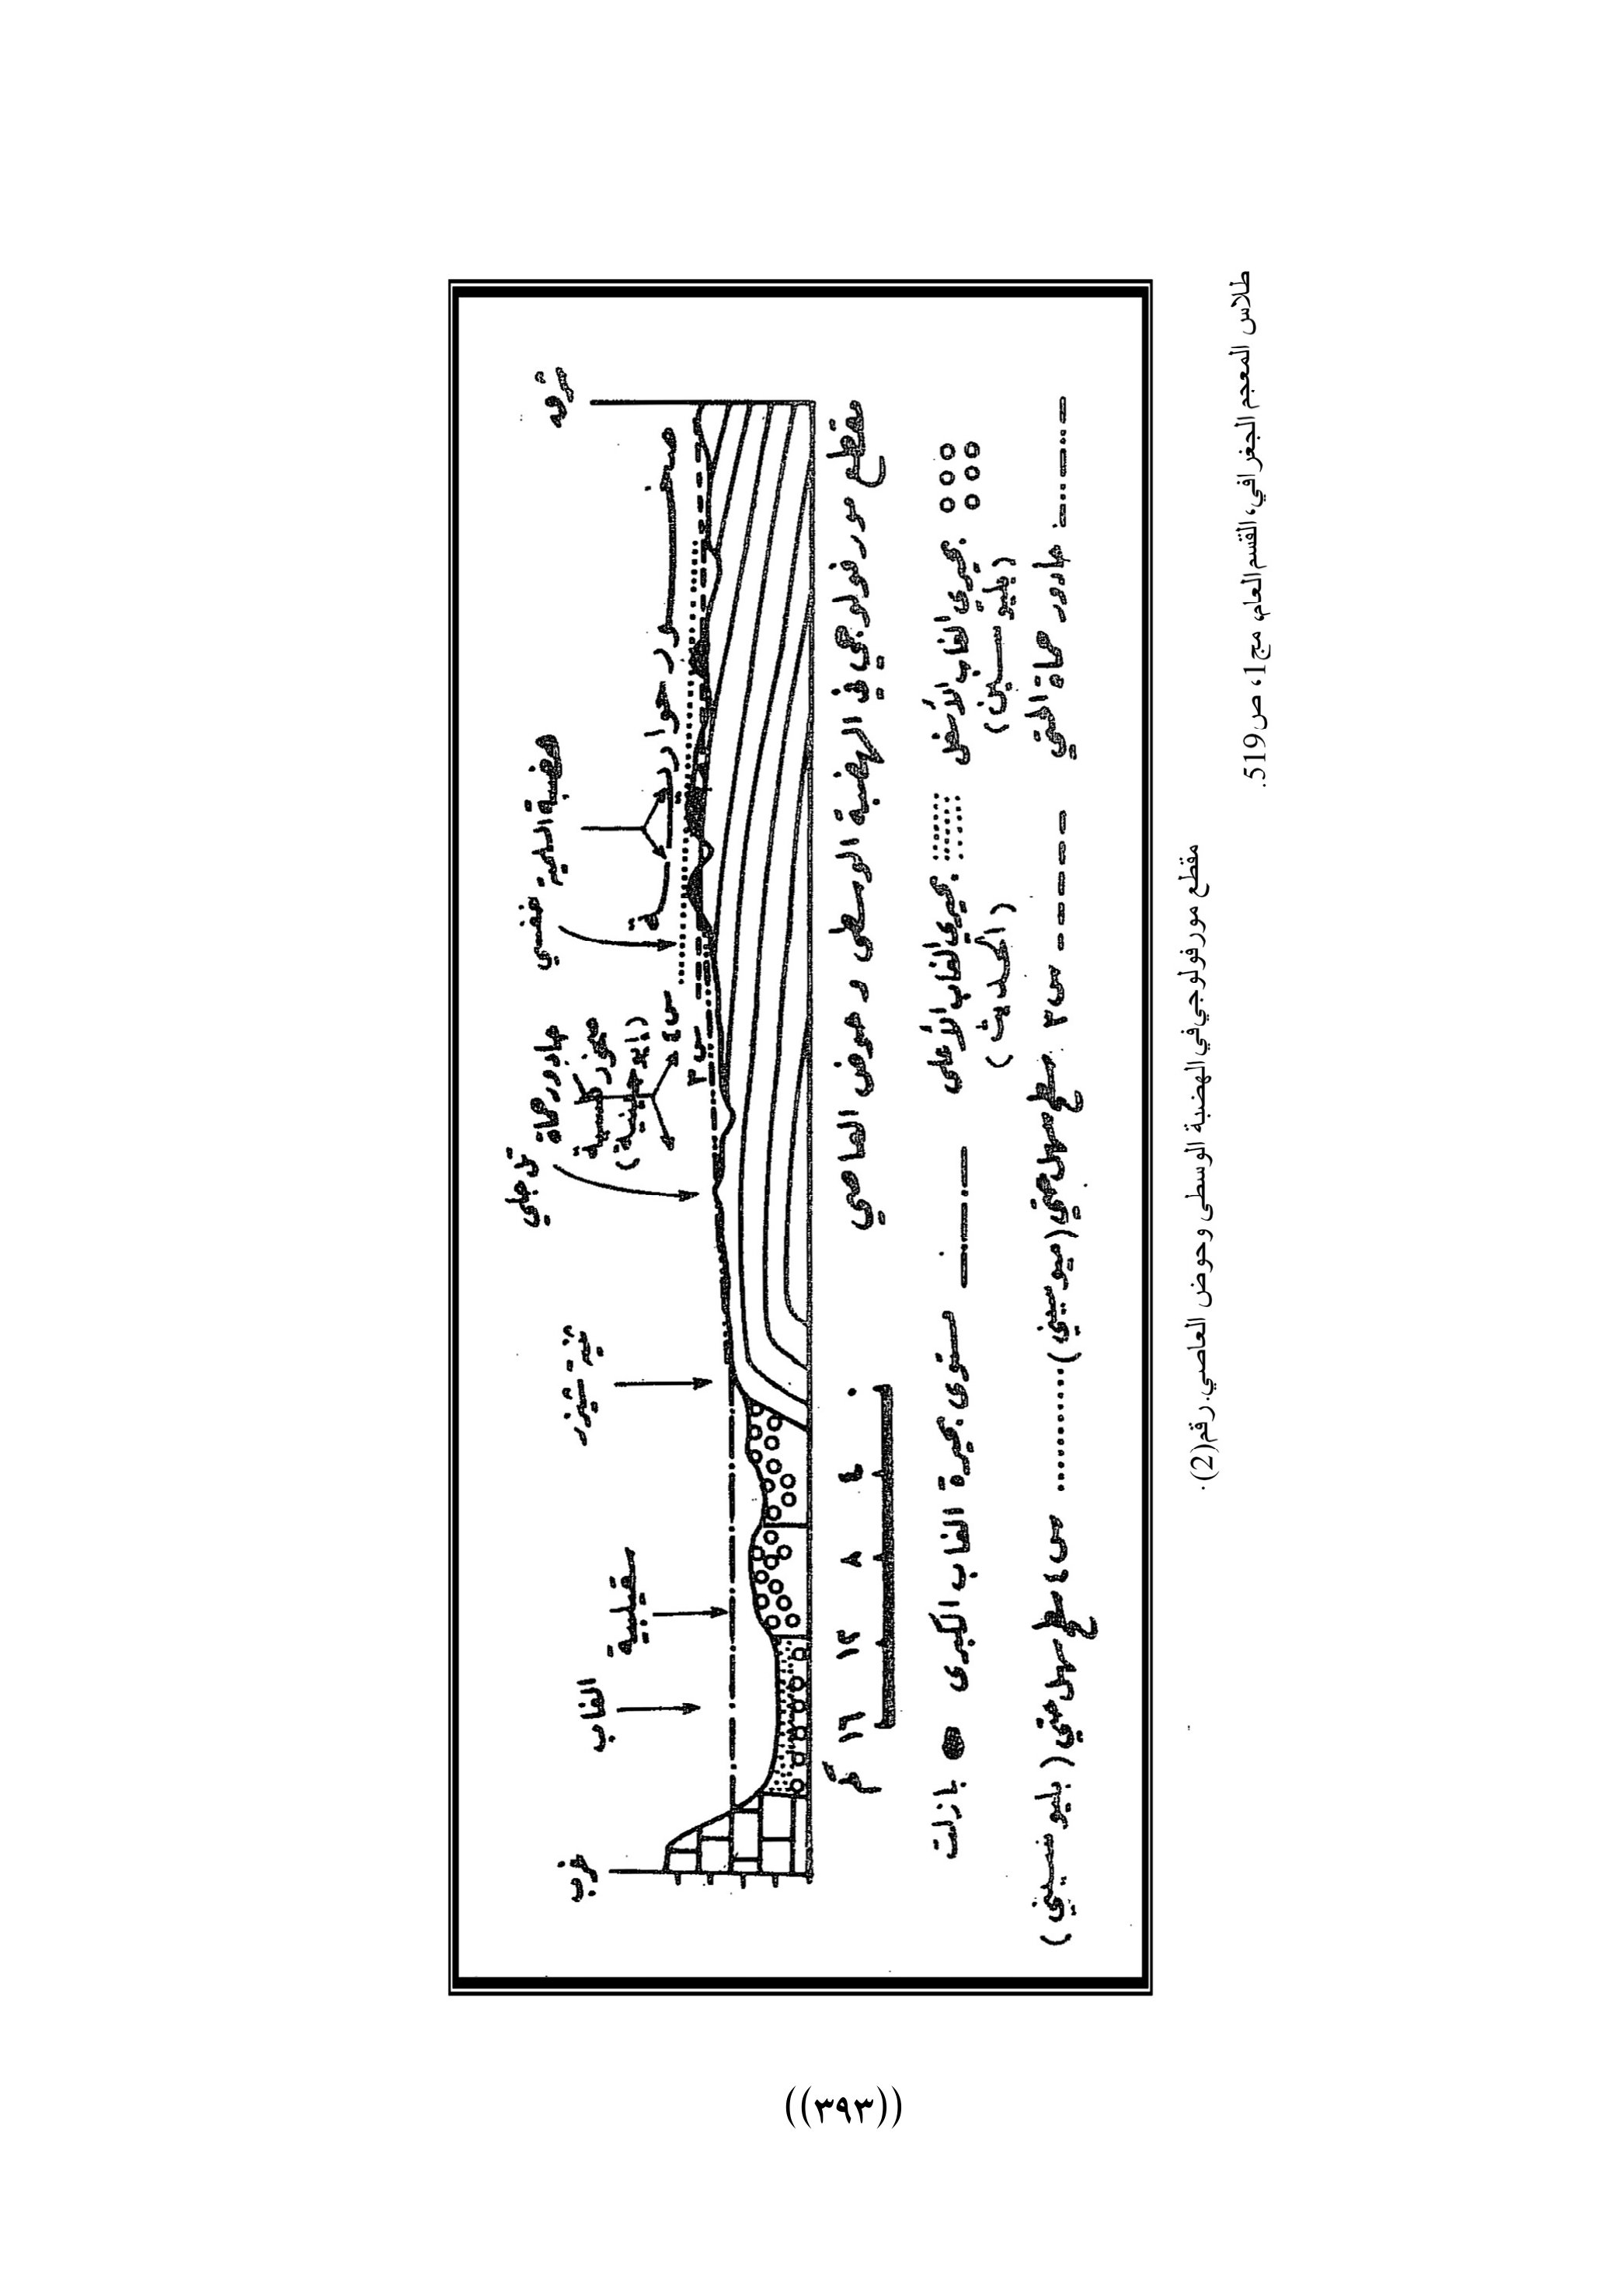 شرق
غرب
هضبة السلمية
صخور حوارية
تل جلي
جادور حماة
صخور كلسية
س٤
س٣
ثنية شيزر
سقيلبية
الغاب
مقطع مورفولوجي في الهضبة الوسطى وحوض العاصي
١٦ ١٢ ٨ ٤ ٠
كم
بحيري الغاب الأسفل
(بليوسين)
بحيري الغاب الأعلى
(الحديث)
مستوى بحيرة الغاب الكبرى
بازلت
جادور حماة الحتي
س٣ سطح سهل حتي (ميوسيني)
س٤ سطح سهل حتي (بليوسيني)
مقطع مورفولوجي في الهضبة الوسطى وحوض العاصي. رقم(2).
طلاس المعجم الجغرافي، القسم العام، مج1، ص519.
((٣٩٣))